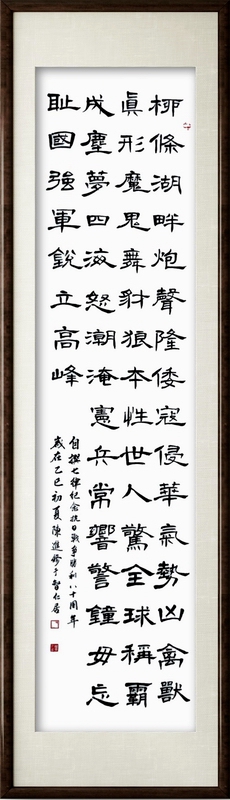 柳條湖畔炮聲隆倭寇侵華氣勢凶禽獸
眞形魔鬼舞豺狼本性世人驚全球稱霸
成塵夢四海怒潮淹憲兵常響警鐘毋忘
恥國強軍銳立高峰
自撰七律紀念抗日戰爭勝利八十周年
歲在乙巳初夏陳進于智仁居